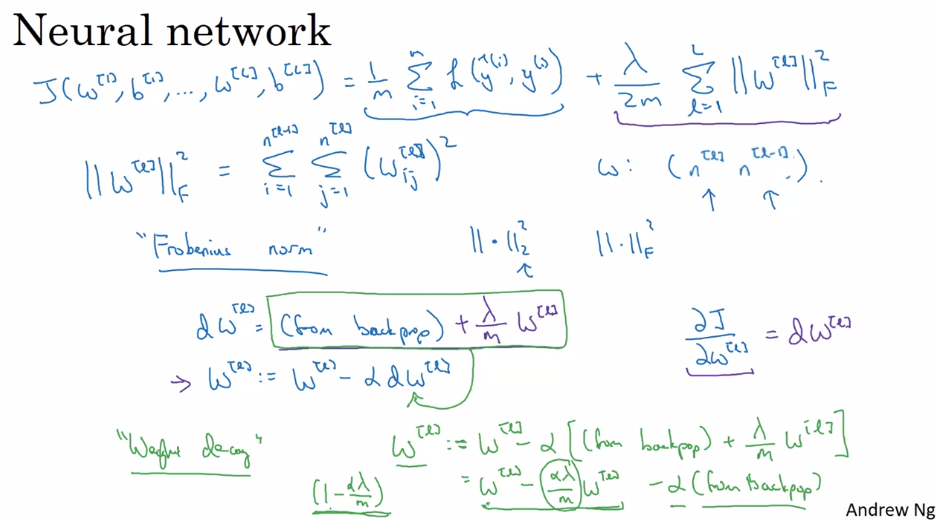 Neural network
J(w^[1], b^[1], ..., w^[L], b^[L]) = 1/m Σ_{i=1}^{m} L(ŷ^(i), y^(i)) + λ/2m Σ_{l=1}^{L} ||w^[l]||_F^2
||w^[l]||_F^2 = Σ_{i=1}^{n^[l-1]} Σ_{j=1}^{n^[l]} (w_ij^[l])^2 w: (n^[l] n^[l-1]).
"Frobenius norm" ||·||_2^2 ||·||_F^2
dw^[l] = (from backprop) + λ/m w^[l]
∂J/∂w^[l] = dw^[l]
→ w^[l] := w^[l] - α dw^[l]
"Weight decay" w^[l] := w^[l] - α[(from backpop) + λ/m w^[l]]
= w^[l] - αλ/m w^[l] - α(from backpop)
(1 - αλ/m)
Andrew Ng